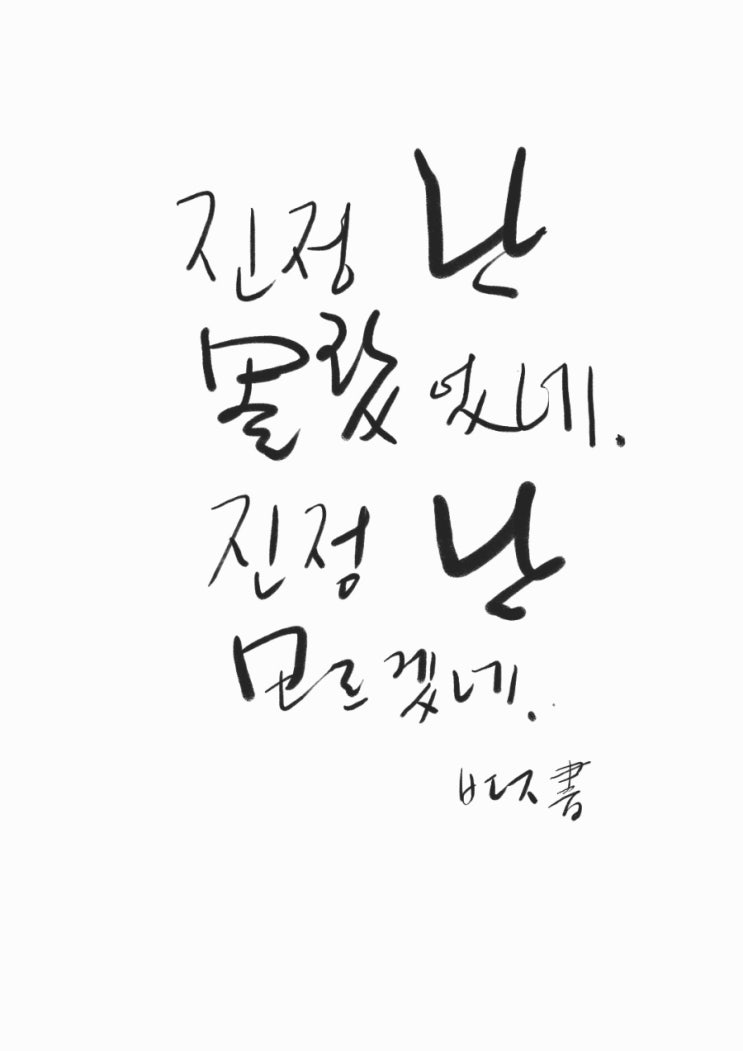 진정 난
몰랐었네.
진정 난
모르겠네.
書